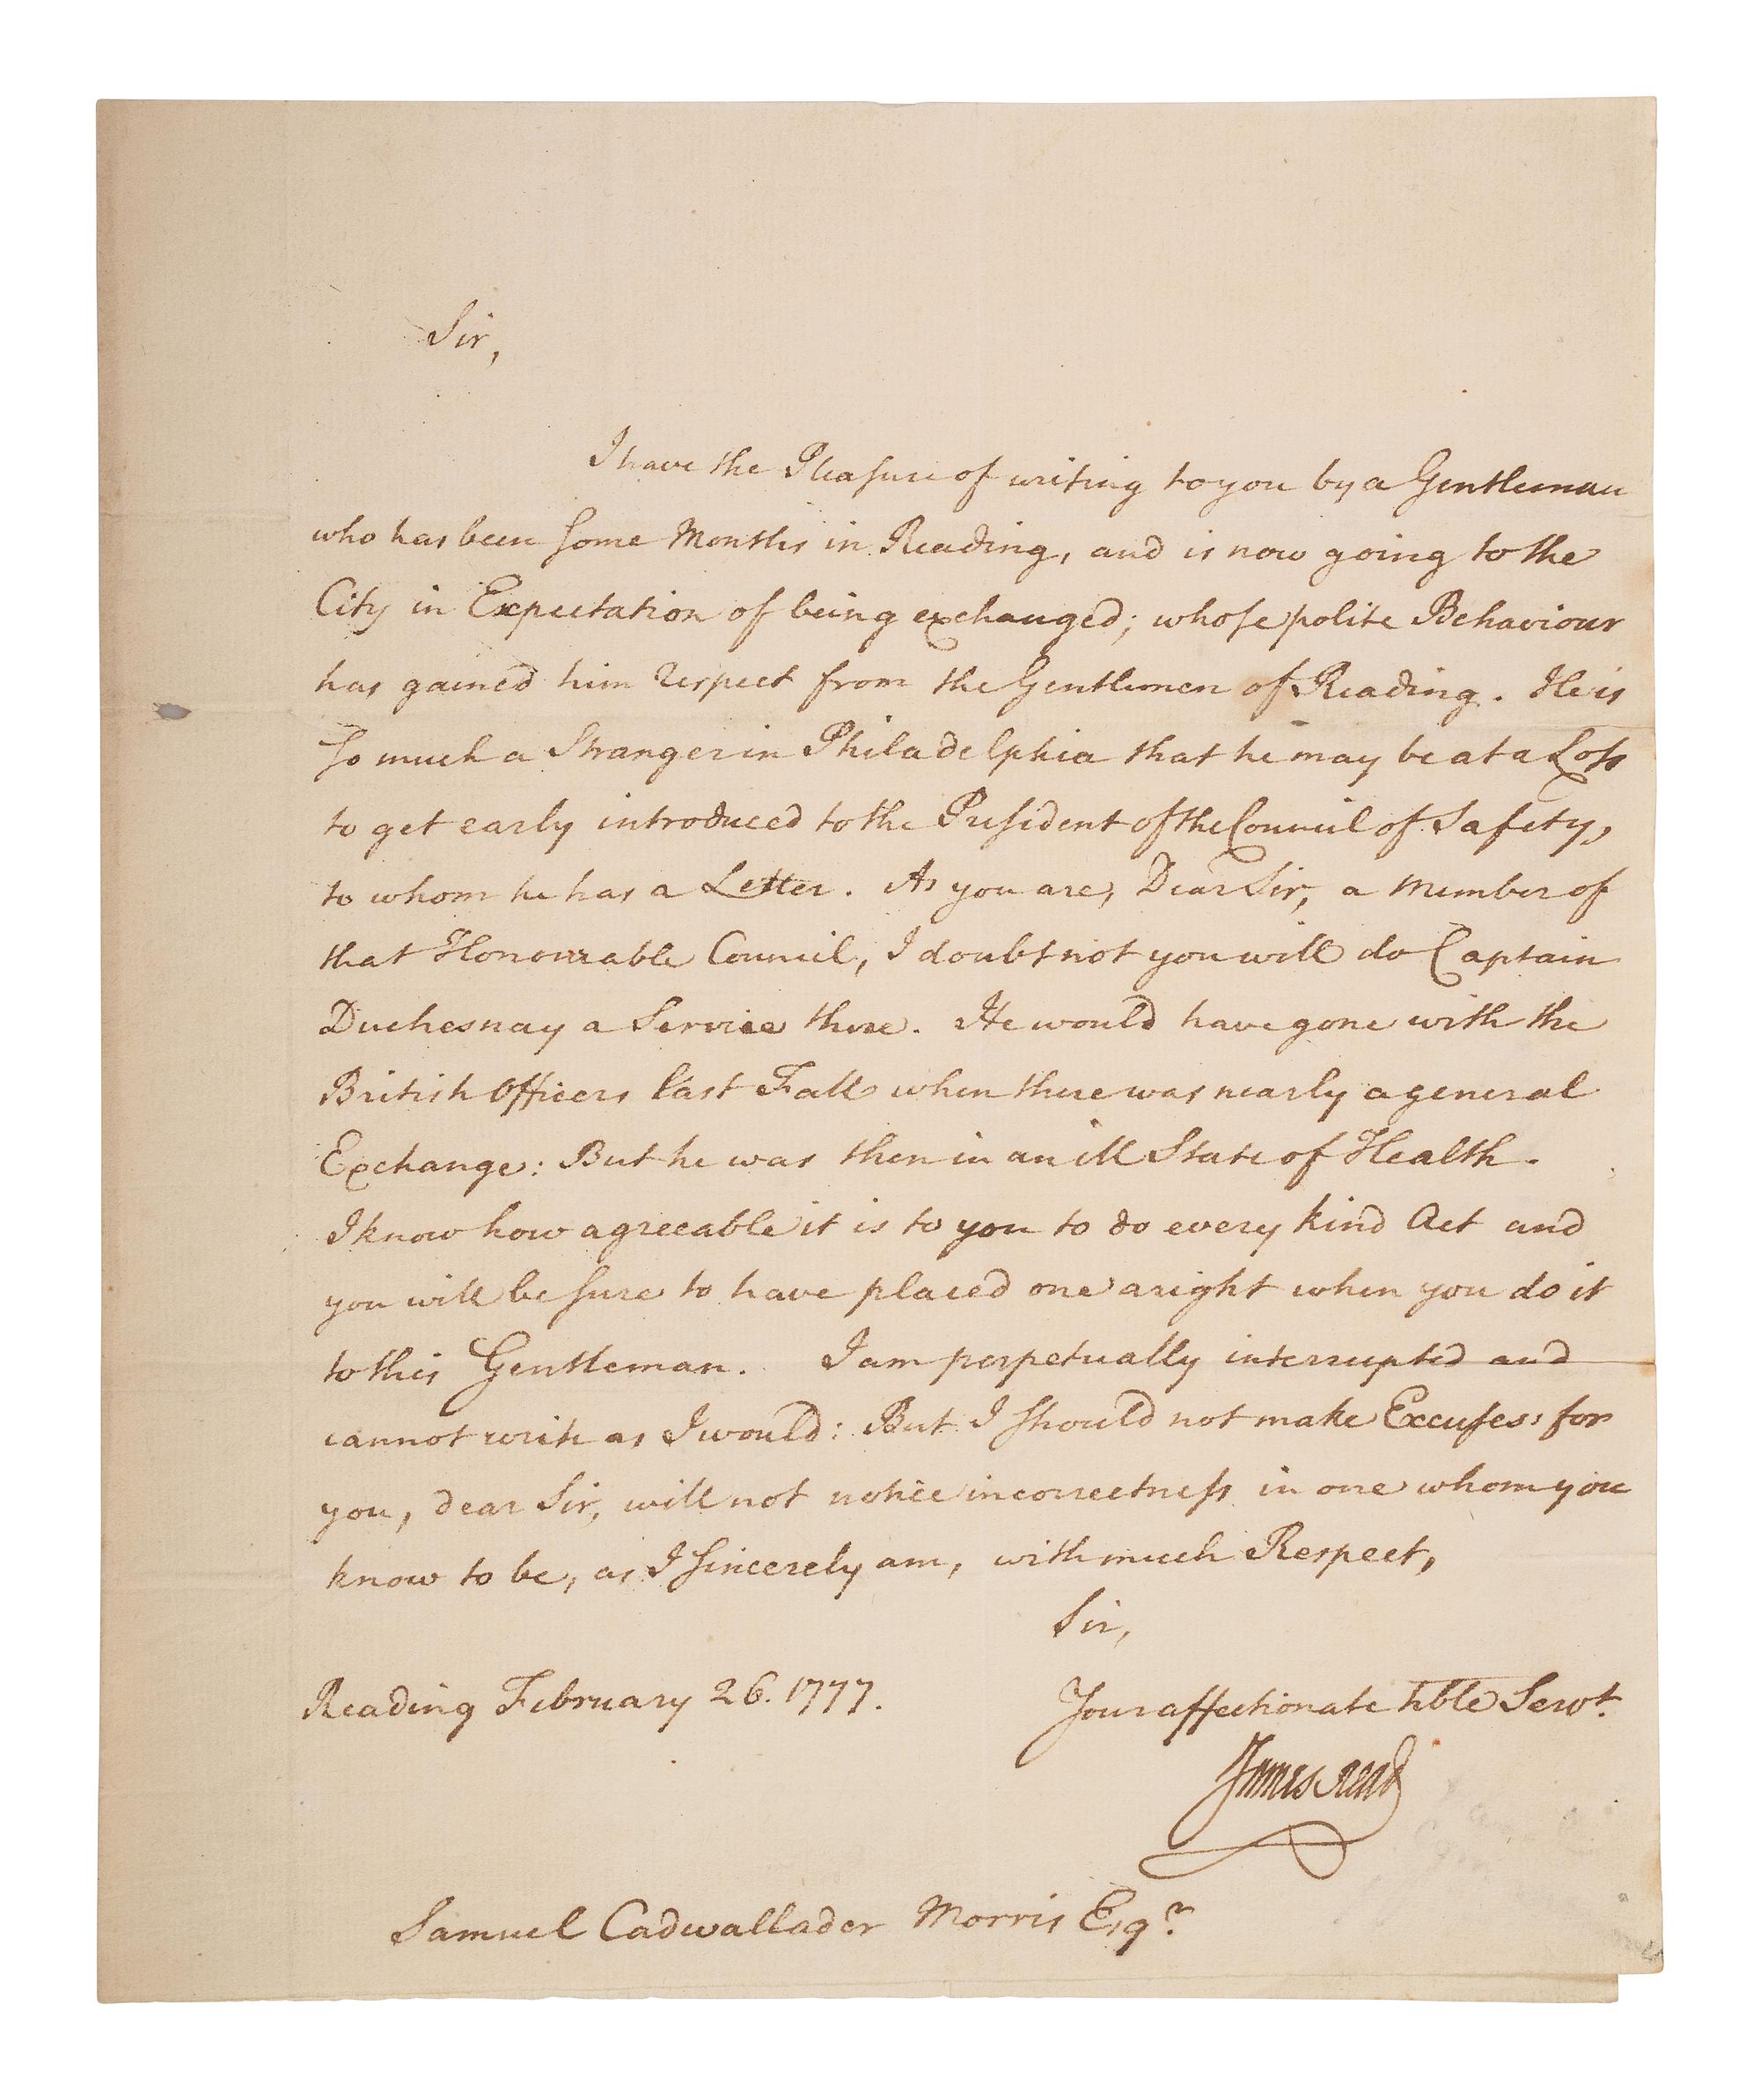 Sir,
I have the Pleasure of writing to you by a Gentleman
who has been some Months in Reading, and is now going to the
City in Expectation of being exchanged; whose polite Behaviour
has gained him respect from the Gentlemen of Reading. He is
so much a Stranger in Philadelphia that he may be at a Loss
to get early introduced to the President of the Council of Safety,
to whom he has a Letter. As you are, Dear Sir, a Member of
that Honourable Council, I doubt not you will do Captain
Duchesnay a Service there. He would have gone with the
British Officers last Fall when there was nearly a general
Exchange: But he was then in an ill State of Health.
I know how agreeable it is to you to do every kind Act and
you will be sure to have placed one aright when you do it
to this Gentleman. I am perpetually interrupted and
cannot write as I would: But I should not make Excuses; for
you, dear Sir, will not notice incorrectness in one whom you
know to be, as I sincerely am, with much Respect,
Sir,
Reading February 26. 1777. Your affectionate hble Servt.
James Read
Samuel Cadwallader Morris Esqr.